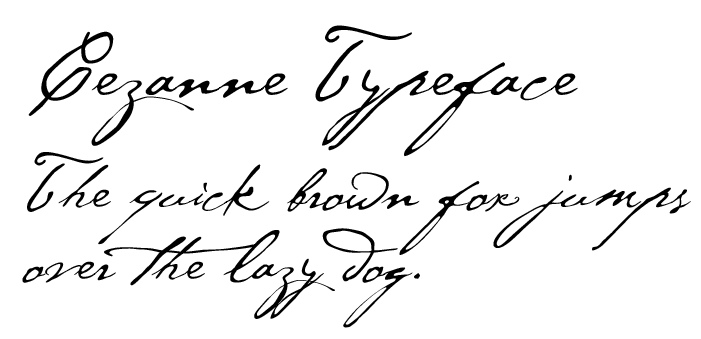 Cezanne Typeface
The quick brown fox jumps
over the lazy dog.